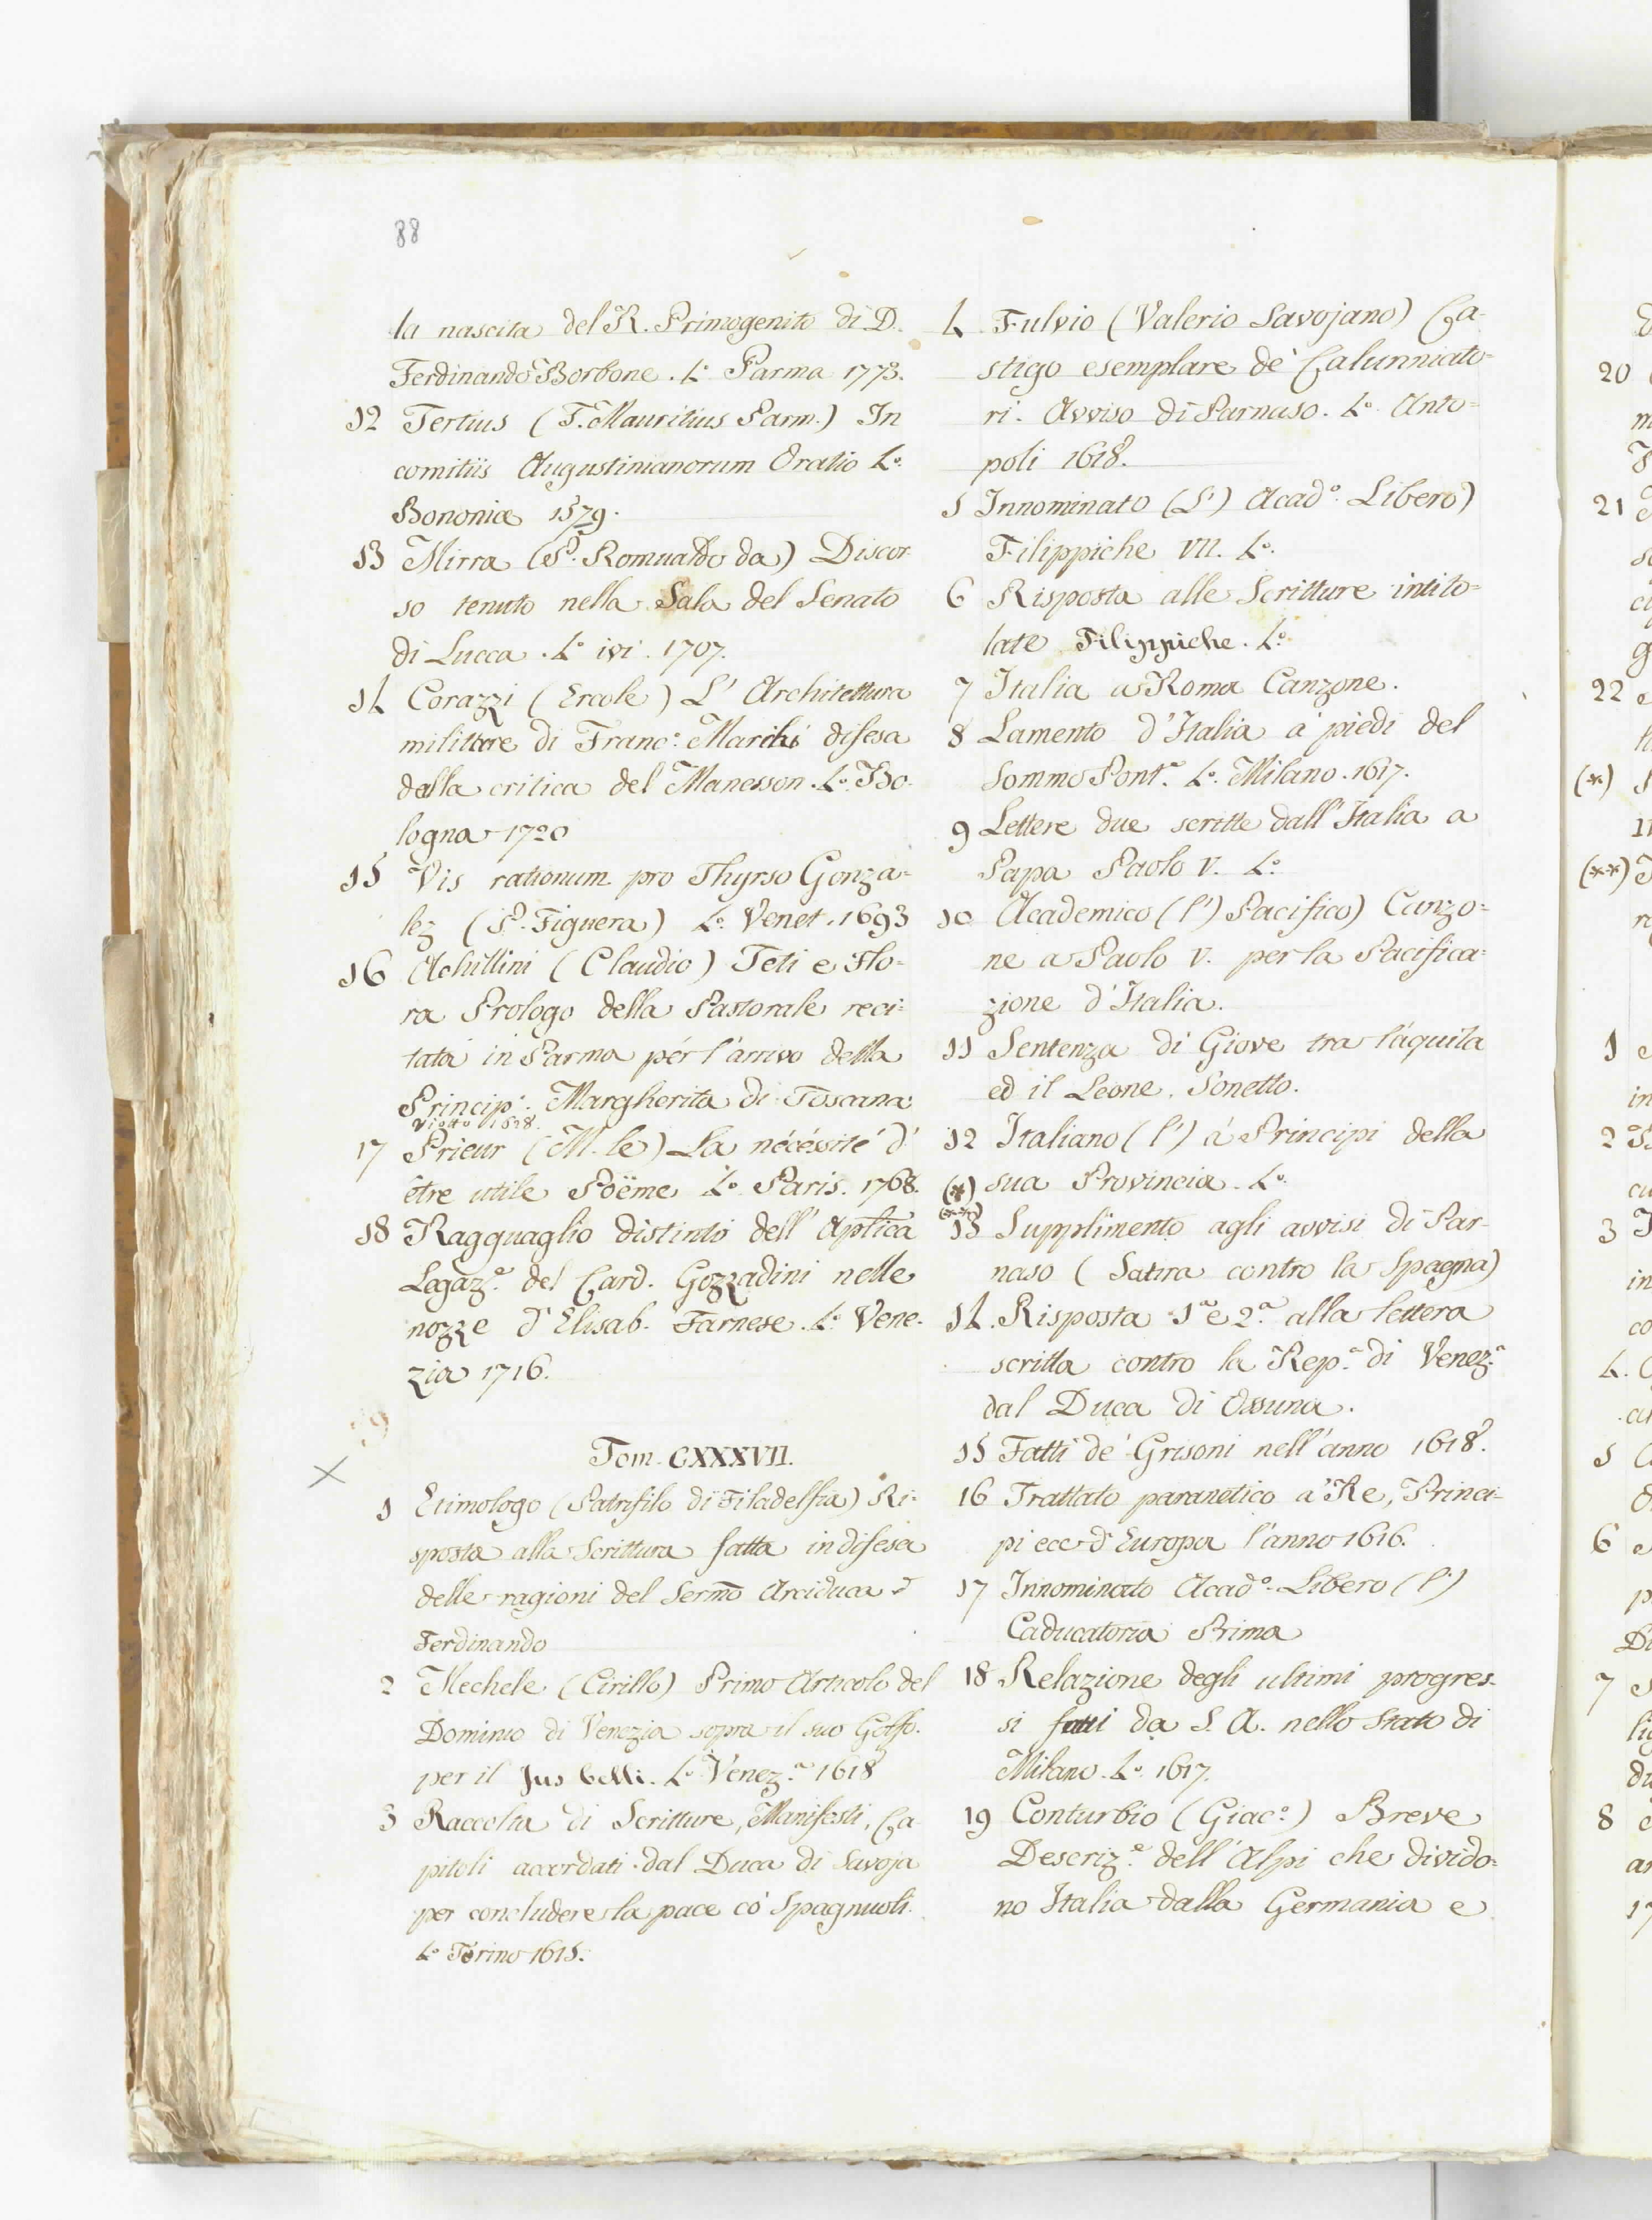 88
la nascita del R. Primogenito di D.
Ferdinando Borbone. 4.º Parma 1773.
12 Tertius (F. Mauritius Parm.) In
comitiis Augustinianorum Oratio 4.º
Bononiæ 1579.
13 Mirra (P. Romualdo da) Discor-
so tenuto nella Sala del Senato
di Lucca. 4.º ivi. 1707.
14 Corazzi (Ercole) L' Architettura
milittare di Franc.º Marchi difesa
dalla critica del Manesson. 4.º Bo-
logna 1720
15 Vis rationum pro Thyrso Gonza=
lez (P. Figuera) 4.º Venet. 1693
16 Achillini (Claudio) Teti e Flo=
ra Prologo della Pastorale reci=
tata in Parma per l'arrivo della
Princip.ª Margherita di Toscana
Viotto 1628.
17 Prieur (M. le) La nécéssité d'
être utile Poëme 4.º Paris. 1768.
18 Ragguaglio distinto dell' Aplica
Legaz.e del Card. Gozzadini nelle
nozze d' Elisab. Farnese. 4.º Vene-
zia 1716.
Tom. CXXXVII.
1 Etimologo (Patrifilo di Filadelfia) Ri=
sposta alla Scrittura fatta in difesa
delle ragioni del Sermo Arciduca
Ferdinando
2 Mechele (Cirillo) Primo Articolo del
Dominio di Venezia sopra il suo Golfo.
per il Jus belli. 4.º Venez.ª 1618
3 Raccolta di Scritture, Manifesti, Ca-
pitoli accordati dal Duca di Savoja
per concludere la pace co' Spagnuoli.
4.º Torino 1615.
4 Fulvio (Valerio Savojano) Ca-
stigo esemplare de' Calunniato=
ri. Avviso di Parnaso. 4.º Anto=
poli 1618.
5 Innominato (L') Acad.º Libero)
Filippiche VII. 4.º
6 Risposta alle Scritture intito=
late Filippiche. 4.º
7 Italia a Roma Canzone.
8 Lamento d'Italia a' piedi del
Sommo Pont.e 4.º Milano. 1617.
9 Lettere due scritte dall' Italia a
Papa Paolo V. 4.º
10 Academico (l') Pacifico) Canzo=
ne a Paolo V. per la Pacifica=
zione d'Italia.
11 Sentenza di Giove tra l'aquila
ed il Leone. Sonetto.
12 Italiano (l') a' Principi della
(*) sua Provincia. 4.º
(**)
13 Supplimento agli avvisi di Par-
naso (Satira contro la Spagna)
14 Risposta 1ª e 2.ª alla lettera
scritta contro la Rep.ª di Venez.ª
dal Duca di Ossuna.
15 Fatti de' Grisoni nell'anno 1618.
16 Trattato paranetico a' Re, Princi-
pi ecc d'Europa l'anno 1616.
17 Innominato Acad.º Libero (l')
Caducatoria Prima
18 Relazione degli ultimi progres-
si fatti da S. A. nello Stato di
Milano. 4.º 1617.
19 Conturbio (Giac.º) Breve
Descriz.e dell'Alpi che divido=
no Italia dalla Germania e
20
21
22
(*)
(**)
1
2
3
4.
5
6
7
8